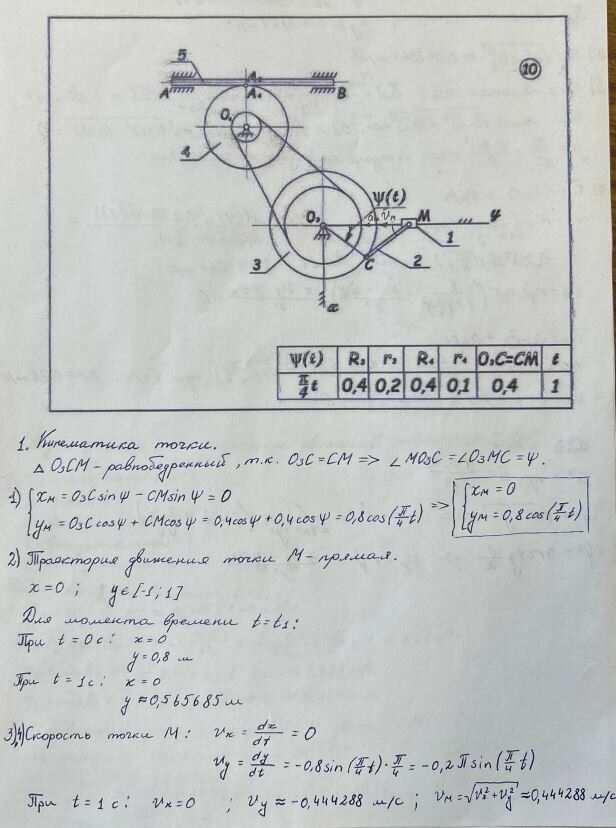 10
5
A₅
A
A₄
B
O₄
4
ψ(t)
O₃
a_м
v_м
M
y
1
2
3
C
x
ψ(t) R₃ r₃ R₄ r₄ O₃C=CM t
π/4 t 0,4 0,2 0,4 0,1 0,4 1
1. Кинематика точки.
△ O₃CM – равнобедренный, т.к. O₃C = CM => ∠MO₃C = ∠O₃MC = ψ.
1) { x_M = O₃C sin ψ – CM sin ψ = 0
y_M = O₃C cos ψ + CM cos ψ = 0,4cos ψ + 0,4 cos ψ = 0,8 cos(π/4 t) => { x_M = 0
y_M = 0,8 cos(π/4 t)
2) Траектория движения точки M – прямая.
x = 0 ; y ∈ [-1 ; 1]
Для момента времени t = t₁:
При t = 0 с : x = 0
y = 0,8 м
При t = 1 с : x = 0
y ≈ 0,565685 м
3),4) Скорость точки M : v_x = dx/dt = 0
v_y = dy/dt = -0,8 sin(π/4 t) · π/4 = -0,2 π sin(π/4 t)
При t = 1 с : v_x = 0 ; v_y ≈ -0,444288 м/с ; v_M = √(v_x² + v_y²) ≈ 0,444288 м/с